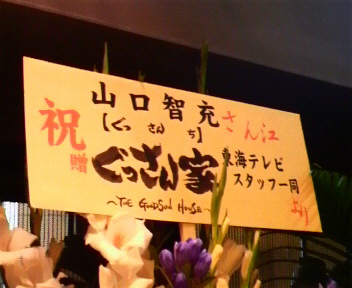 祝
贈
山口智充さん江
【ぐっさんち】
ぐっさん家
東海テレビ
スタッフ一同
より
〜THE GOODSUN HOUSE〜